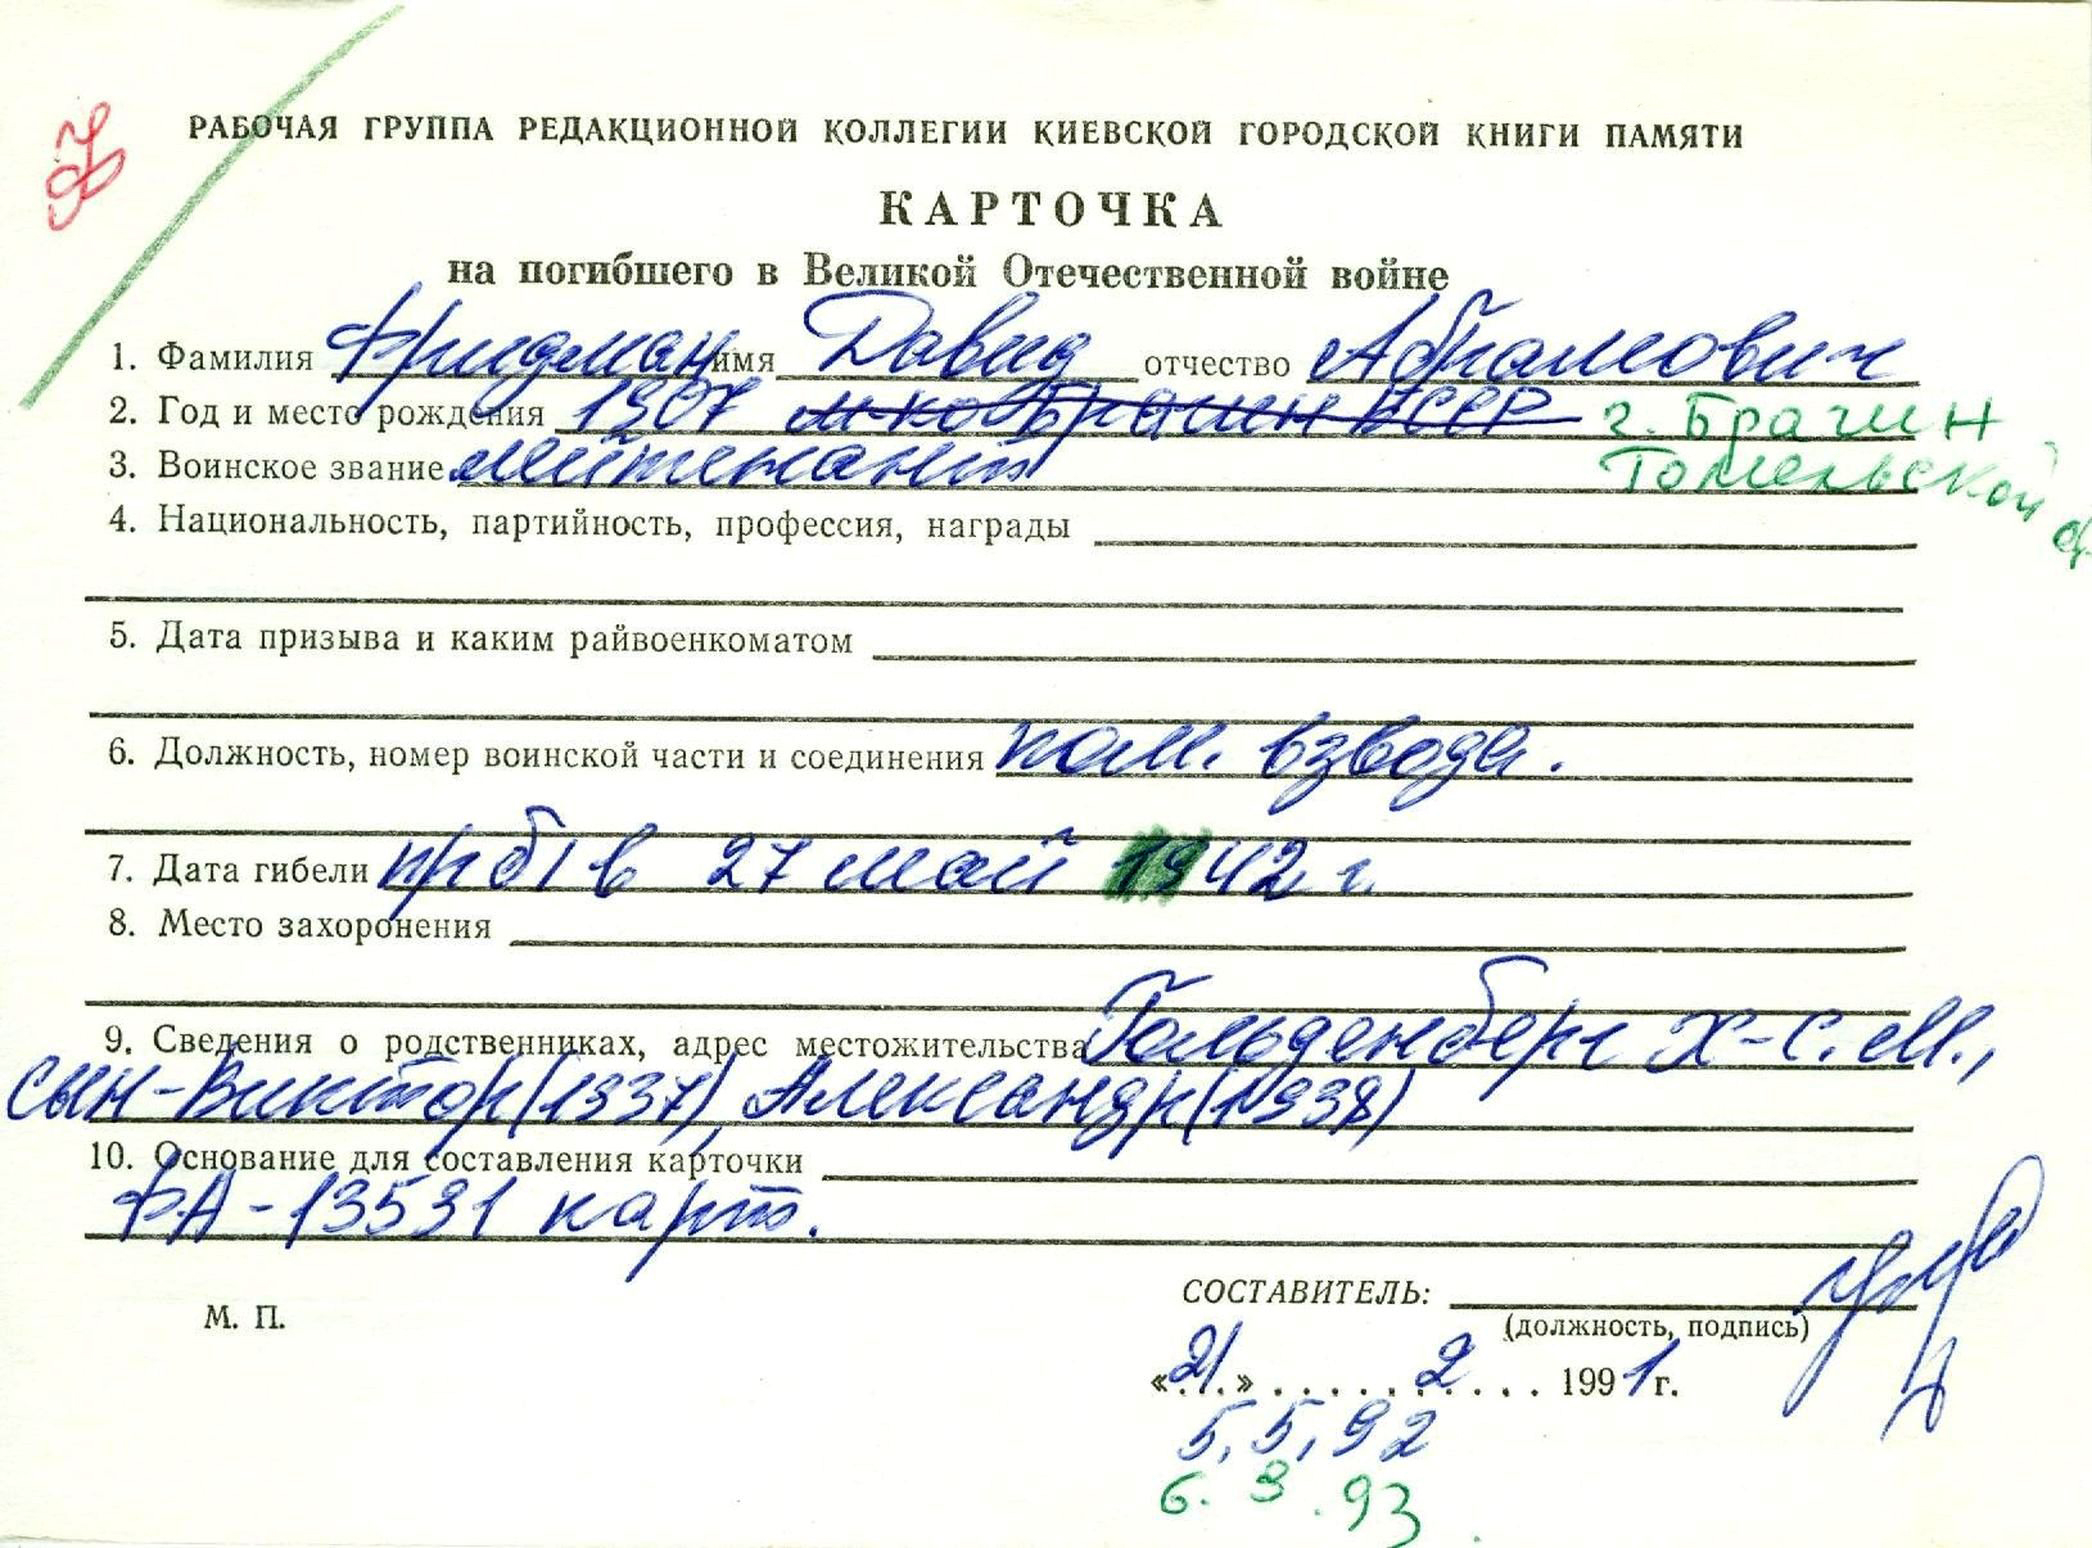 РАБОЧАЯ ГРУППА РЕДАКЦИОННОЙ КОЛЛЕГИИ КИЕВСКОЙ ГОРОДСКОЙ КНИГИ ПАМЯТИ
КАРТОЧКА
на погибшего в Великой Отечественной войне
1. Фамилия Фридман имя Давид отчество Абрамович
2. Год и место рождения 1907 м-ко Брагин БССР г. Брагин
3. Воинское звание лейтенант Гомельской
4. Национальность, партийность, профессия, награды
5. Дата призыва и каким райвоенкоматом
6. Должность, номер воинской части и соединения ком. взвода.
7. Дата гибели пр б/в 27 май 1942 г.
8. Место захоронения
9. Сведения о родственниках, адрес местожительства Гольденберг Х-С. М.,
сын-Виктор (1937), Александр (1938)
10. Основание для составления карточки
ФА-13591 карт.
М. П.
СОСТАВИТЕЛЬ:
(должность, подпись)
«21» 2 1991 г.
5.5.92
6.3.93